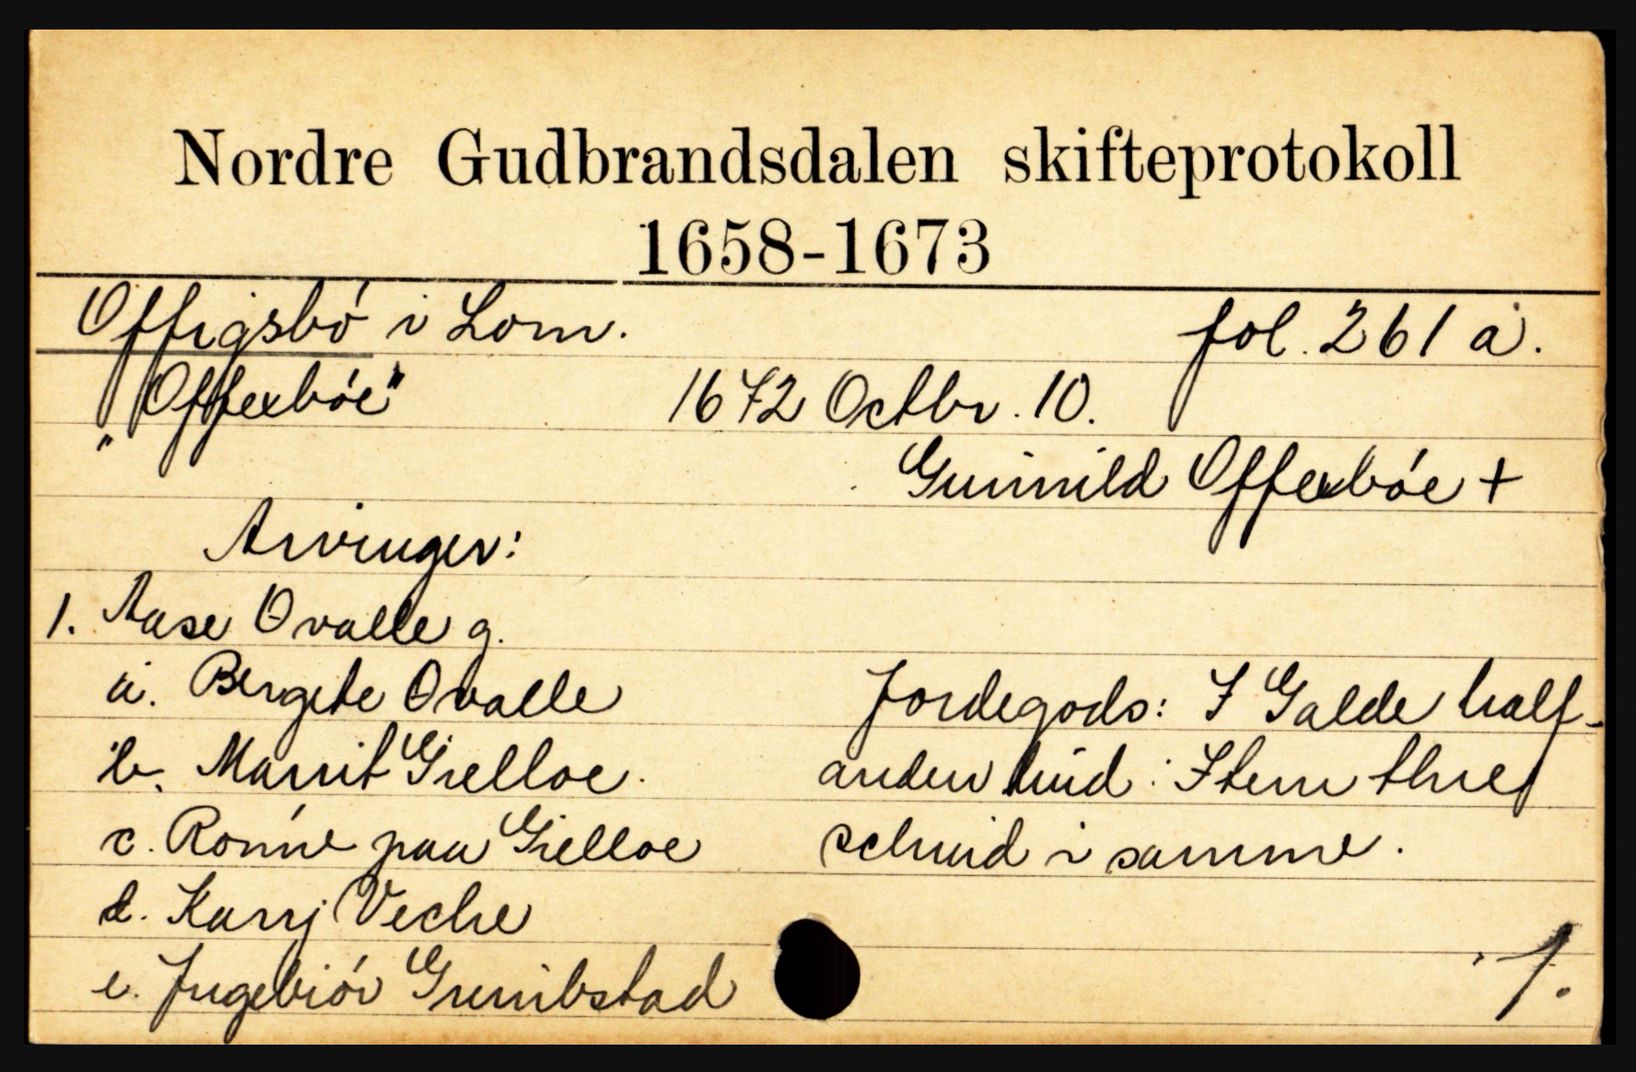 Nordre Gudbrandsdalen skifteprotokoll
1658-1673
Offigsbó i Lom. fol. 261 a.
"Offerbóe" 1672 Octbr. 10.
Gunnild Offerbóe +
Arvinger:
1. Aase Ovalle g.
a. Bergete Ovalle
b. Marrit Gielloe.
c. Ronnv paa Gielloe
d. Karrj Veche
e. Jngebiór Grimbstad
Jordegods: I Galde half-
anden hud: Item thre
schind i samme.
1.